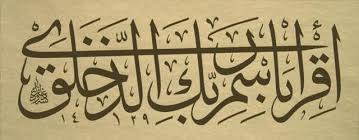 اِقْرَأْ بِاسْمِ رَبِّكَ الَّذِي خَلَقَ